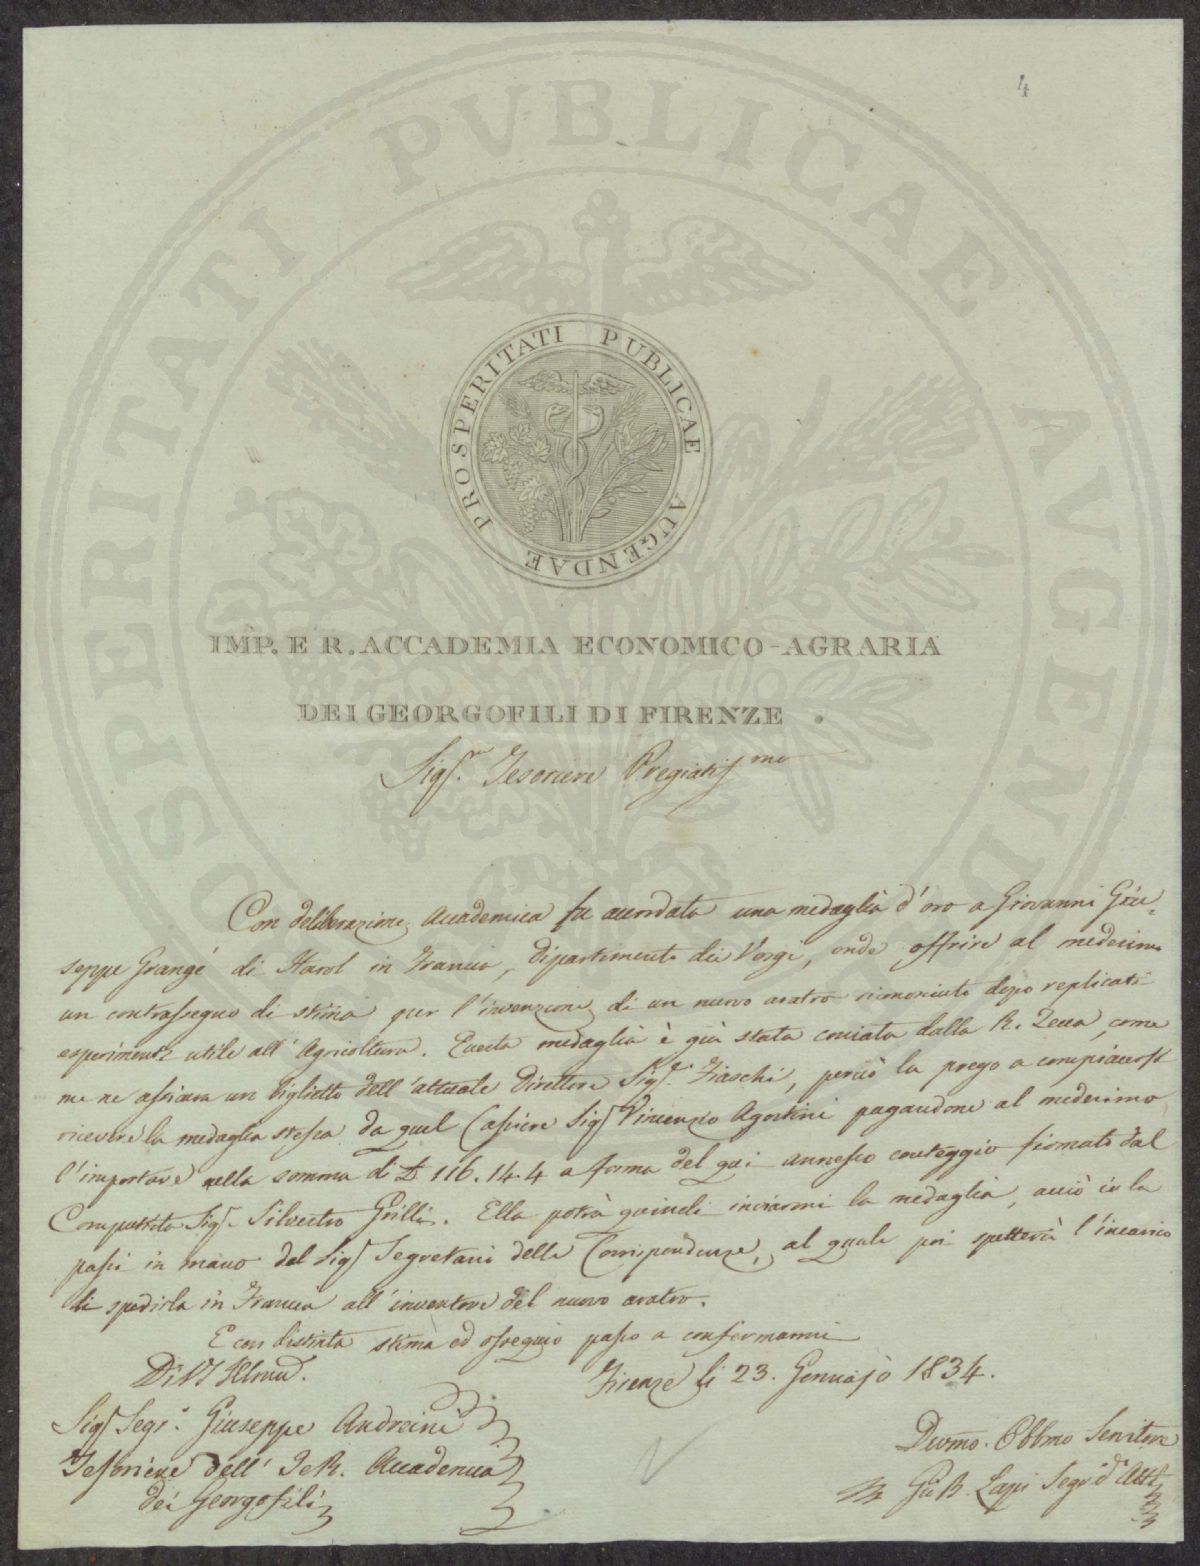 4
PROSPERITATI PUBLICAE AUGENDAE
PROSPERITATI PVBLICAE AVGENDAE
IMP. E R. ACCADEMIA ECONOMICO-AGRARIA
DEI GEORGOFILI DI FIRENZE.
Sigr. Tesoriere Pregiatissmo
Con deliberazione Accademica fu accordata una medaglia d'oro a Giovanni Giu-
seppe Grangé di Harol in Francia, dipartimento dei Vosgi, onde offrire al medesimo
un contrassegno di stima per l'invenzione di un nuovo aratro riconosciuto dopo replicati
esperimenti utile all'Agricoltura. Questa medaglia è già stata coniata dalla R. Zecca, come
me ne assicura un biglietto dell'attuale Direttore Sigr. Fiaschi, perciò la prego a compiacersi
ricevere la medaglia stessa da quel Cassiere Sigr Vincenzo Agostini pagandone al medesimo
l'importare nella somma di £ 116.14.4 a forma del qui annesso conteggio firmato dal
Computista Sigr. Silvestro Grilli. Ella potrà quindi inviarmi la medaglia, acciò io la
passi in mano del Sigr Segretario delle Corrispondenze, al quale poi spetterà l'incarico
di spedirla in Francia all'inventore del nuovo aratro.
E con distinta stima ed ossequio passo a confermarmi
Di VS Illma.
Firenze li 23. Gennajo 1834.
Sigr Segr. Giuseppe Andreini
Tesoriere dell' I e R. Accademia
dei Georgofili
Devmo. Obblmo Servitore
Gio B. Lapi Segr. d. Atti